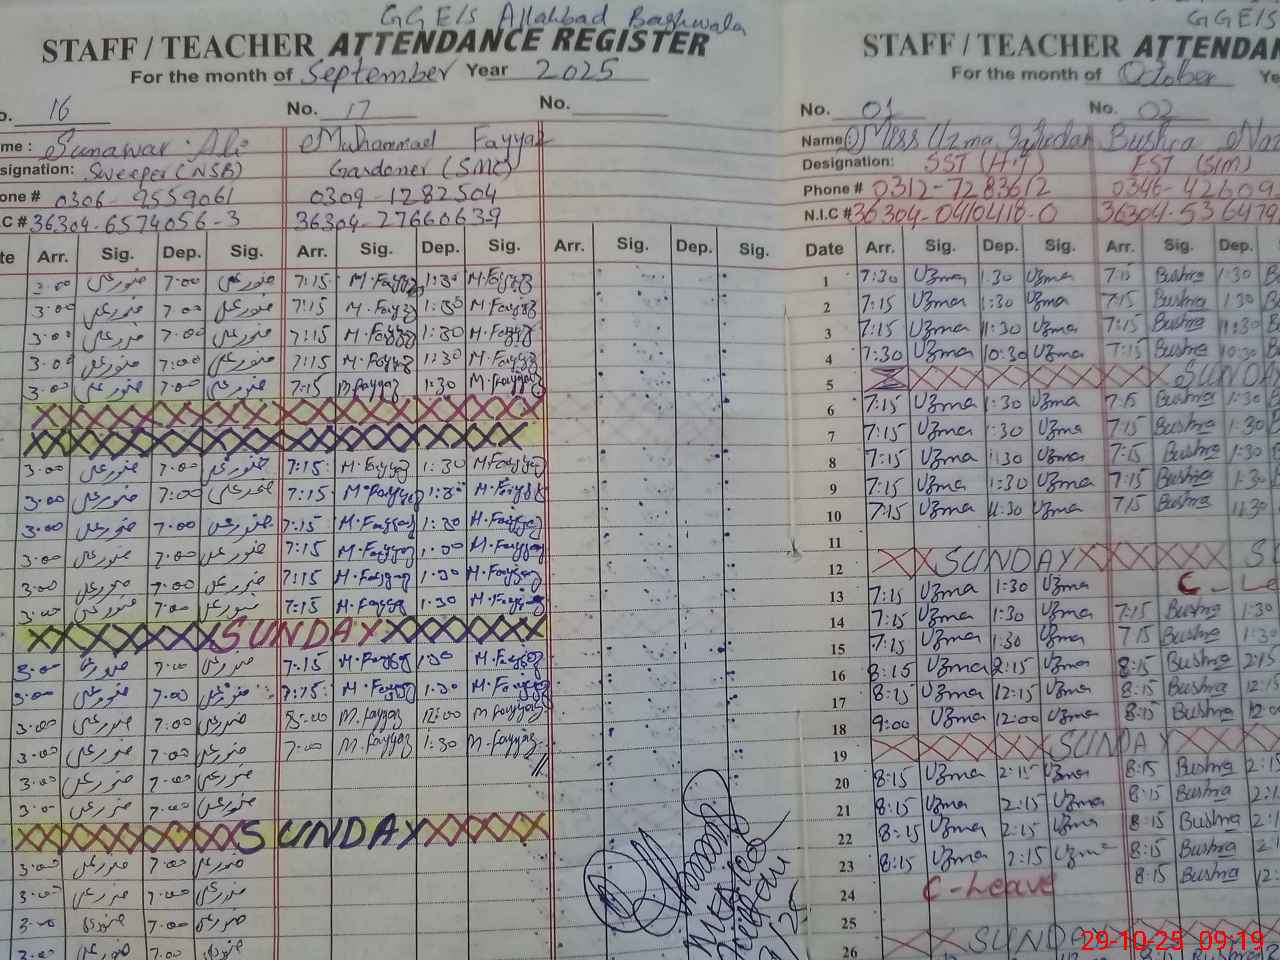 GGE/S Allahbad Baghwala
STAFF / TEACHER ATTENDANCE REGISTER
For the month of September Year 2025
16 No. 17 No.
Sunawar Ali Muhammad Fayyaz
Sweeper (NSB) Gardener (SMC)
0306-9559061 0309-1282504
36304-6574056-3 36304-27660639
Arr. Sig. Dep. Sig. Arr. Sig. Dep. Sig. Arr. Sig. Dep. Sig.
3:00 منور علی 7:00 منور علی 7:15 M.Fayyaz 1:30 M.Fayyaz
3:00 منور علی 7:00 منور علی 7:15 M.Fayyaz 1:30 M.Fayyaz
3:00 منور علی 7:00 منور علی 7:15 M.Fayyaz 1:30 M.Fayyaz
3:00 منور علی 7:00 منور علی 7:15 M.Fayyaz 1:30 M.Fayyaz
3:00 منور علی 7:00 منور علی 7:15 M.Fayyaz 1:30 M.Fayyaz
3:00 منور علی 7:00 منور علی 7:15 M.Fayyaz 1:30 M.Fayyaz
3:00 منور علی 7:00 منور علی 7:15 M.Fayyaz 1:30 M.Fayyaz
3:00 منور علی 7:00 منور علی 7:15 M.Fayyaz 1:30 M.Fayyaz
3:00 منور علی 7:00 منور علی 7:15 M.Fayyaz 1:00 M.Fayyaz
3:00 منور علی 7:00 منور علی 7:15 M.Fayyaz 1:30 M.Fayyaz
3:00 منور علی 7:00 منور علی 7:15 M.Fayyaz 1:30 M.Fayyaz
SUNDAY
3:00 منور علی 7:00 منور علی 7:15 M.Fayyaz 1:30 M.Fayyaz
3:00 منور علی 7:00 منور علی 7:15 M.Fayyaz 1:30 M.Fayyaz
3:00 منور علی 7:00 منور علی 8:00 M.Fayyaz 12:00 M.Fayyaz
3:00 منور علی 7:00 منور علی 7:00 M.Fayyaz 1:30 M.Fayyaz
3:00 منور علی 7:00 منور علی
3:00 منور علی 7:00 منور علی
SUNDAY
3:00 منور علی 7:00 منور علی
3:00 منور علی 7:00 منور علی
3:00 منور علی 7:00 منور علی
3:00 منور علی 7:00 منور علی
GGE/S
STAFF / TEACHER
For the month of October
No. 01 No. 02
Name: Miss Uzma Bushra
Designation: SST (H.T) EST (S/M)
Phone # 0312-7283612 0346-42609
N.I.C # 36304-0410418-0 36304-536479
Date Arr. Sig. Dep. Sig. Arr. Sig. Dep.
1 7:30 Uzma 1:30 Uzma 7:15 Bushra 1:30
2 7:15 Uzma 1:30 Uzma 7:15 Bushra 1:30
3 7:15 Uzma 1:30 Uzma 7:15 Bushra 1:30
4 7:30 Uzma 10:30 Uzma 7:15 Bushra 10:30
5 SUNDA
6 7:15 Uzma 1:30 Uzma 7:15 Bushra 1:30
7 7:15 Uzma 1:30 Uzma 7:15 Bushra 1:30
8 7:15 Uzma 1:30 Uzma 7:15 Bushra 1:30
9 7:15 Uzma 1:30 Uzma 7:15 Bushra 1:30
10 7:15 Uzma 11:30 Uzma 7:15 Bushra 11:30
11
12 SUNDAY
13 7:15 Uzma 1:30 Uzma C - Le
14 7:15 Uzma 1:30 Uzma 7:15 Bushra 1:30
15 7:15 Uzma 1:30 Uzma 7:15 Bushra 1:30
16 8:15 Uzma 2:15 Uzma 8:15 Bushra 2:15
17 8:15 Uzma 12:15 Uzma 8:15 Bushra 12:15
18 9:00 Uzma 12:00 Uzma 8:15 Bushra 12:00
19 SUNDAY
20 8:15 Uzma 2:15 Uzma 8:15 Bushra 2:15
21 8:15 Uzma 2:15 Uzma 8:15 Bushra
22 8:15 Uzma 2:15 Uzma 8:15 Bushra
23 8:15 Uzma 2:15 Uzma 8:15 Bushra
24 C-Leave 8:15 Bushra
25
26 SUNDAY
29-10-25 09:19